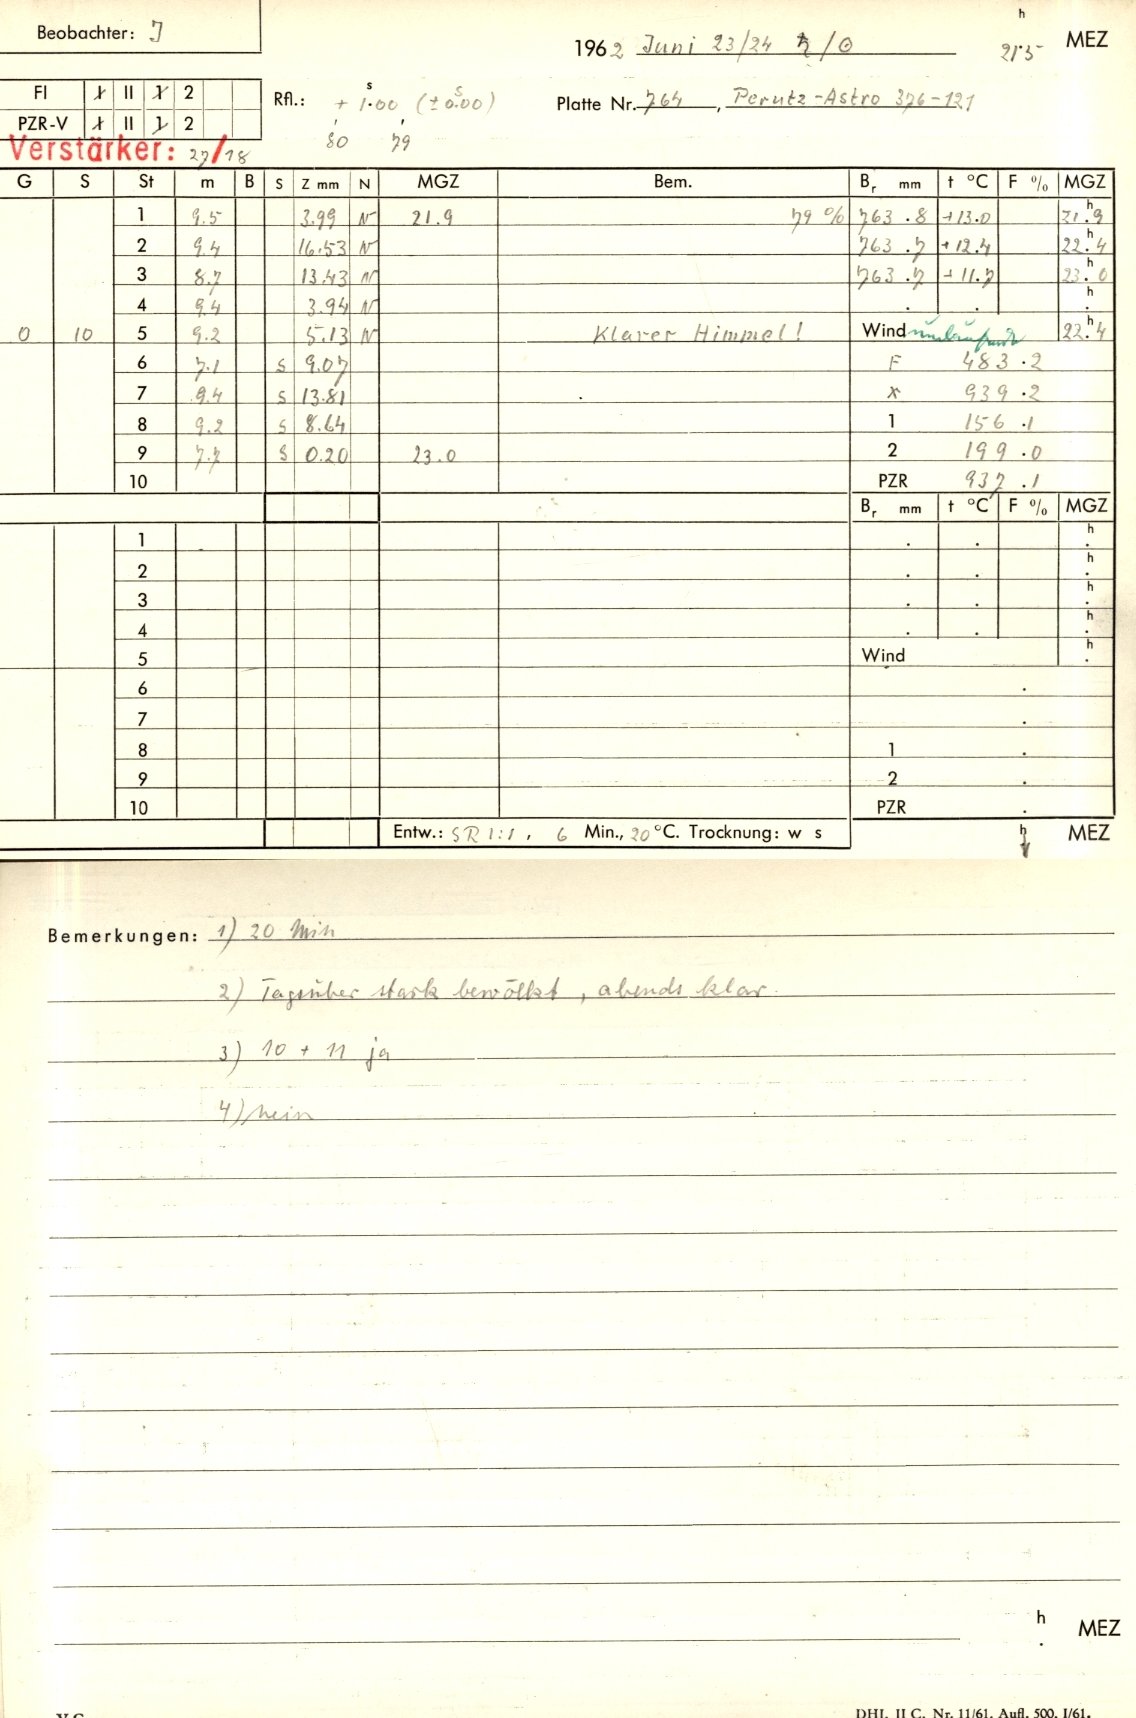 Beobachter: J
1962 Juni 23/24 ♄/☉ 21.5 h MEZ
FI I II 1 2
PZR-V I II 1 2
Rfl.: + 1.00 s (± 0.00 s)
80 79
Platte Nr. 764, Perutz-Astro 376-121
Verstärker: 27/18
G S St m B S Z mm N MGZ Bem. Br mm t °C F % MGZ
1 9.5 3.99 N 21.9 79 % 763.8 +13.0 21.9 h
2 9.4 16.53 N 763.7 +12.4 22.4 h
3 8.7 13.43 N 763.7 +11.7 23.0 h
4 9.4 3.94 N . . h .
0 10 5 9.2 5.13 N Klarer Himmel! Wind umlaufend 22.4 h
6 7.1 S 9.07 F 483.2
7 9.4 S 13.81 x 939.2
8 9.2 S 8.64 1 156.1
9 7.7 S 0.20 23.0 2 199.0
10 PZR 937.1
Br mm t °C F % MGZ
1 . . h .
2 . . h .
3 . . h .
4 . . h .
5 Wind h .
6 .
7 .
8 1 .
9 2 .
10 PZR .
Entw.: SR 1:1, 6 Min., 20 °C. Trocknung: w s h MEZ
Bemerkungen: 1) 20 Min
2) Tagsüber stark bewölkt, abends klar.
3) 10 + 11 ja
4) nein
h . MEZ
DHI. II C. Nr. 11/61. Aufl. 500. I/61.